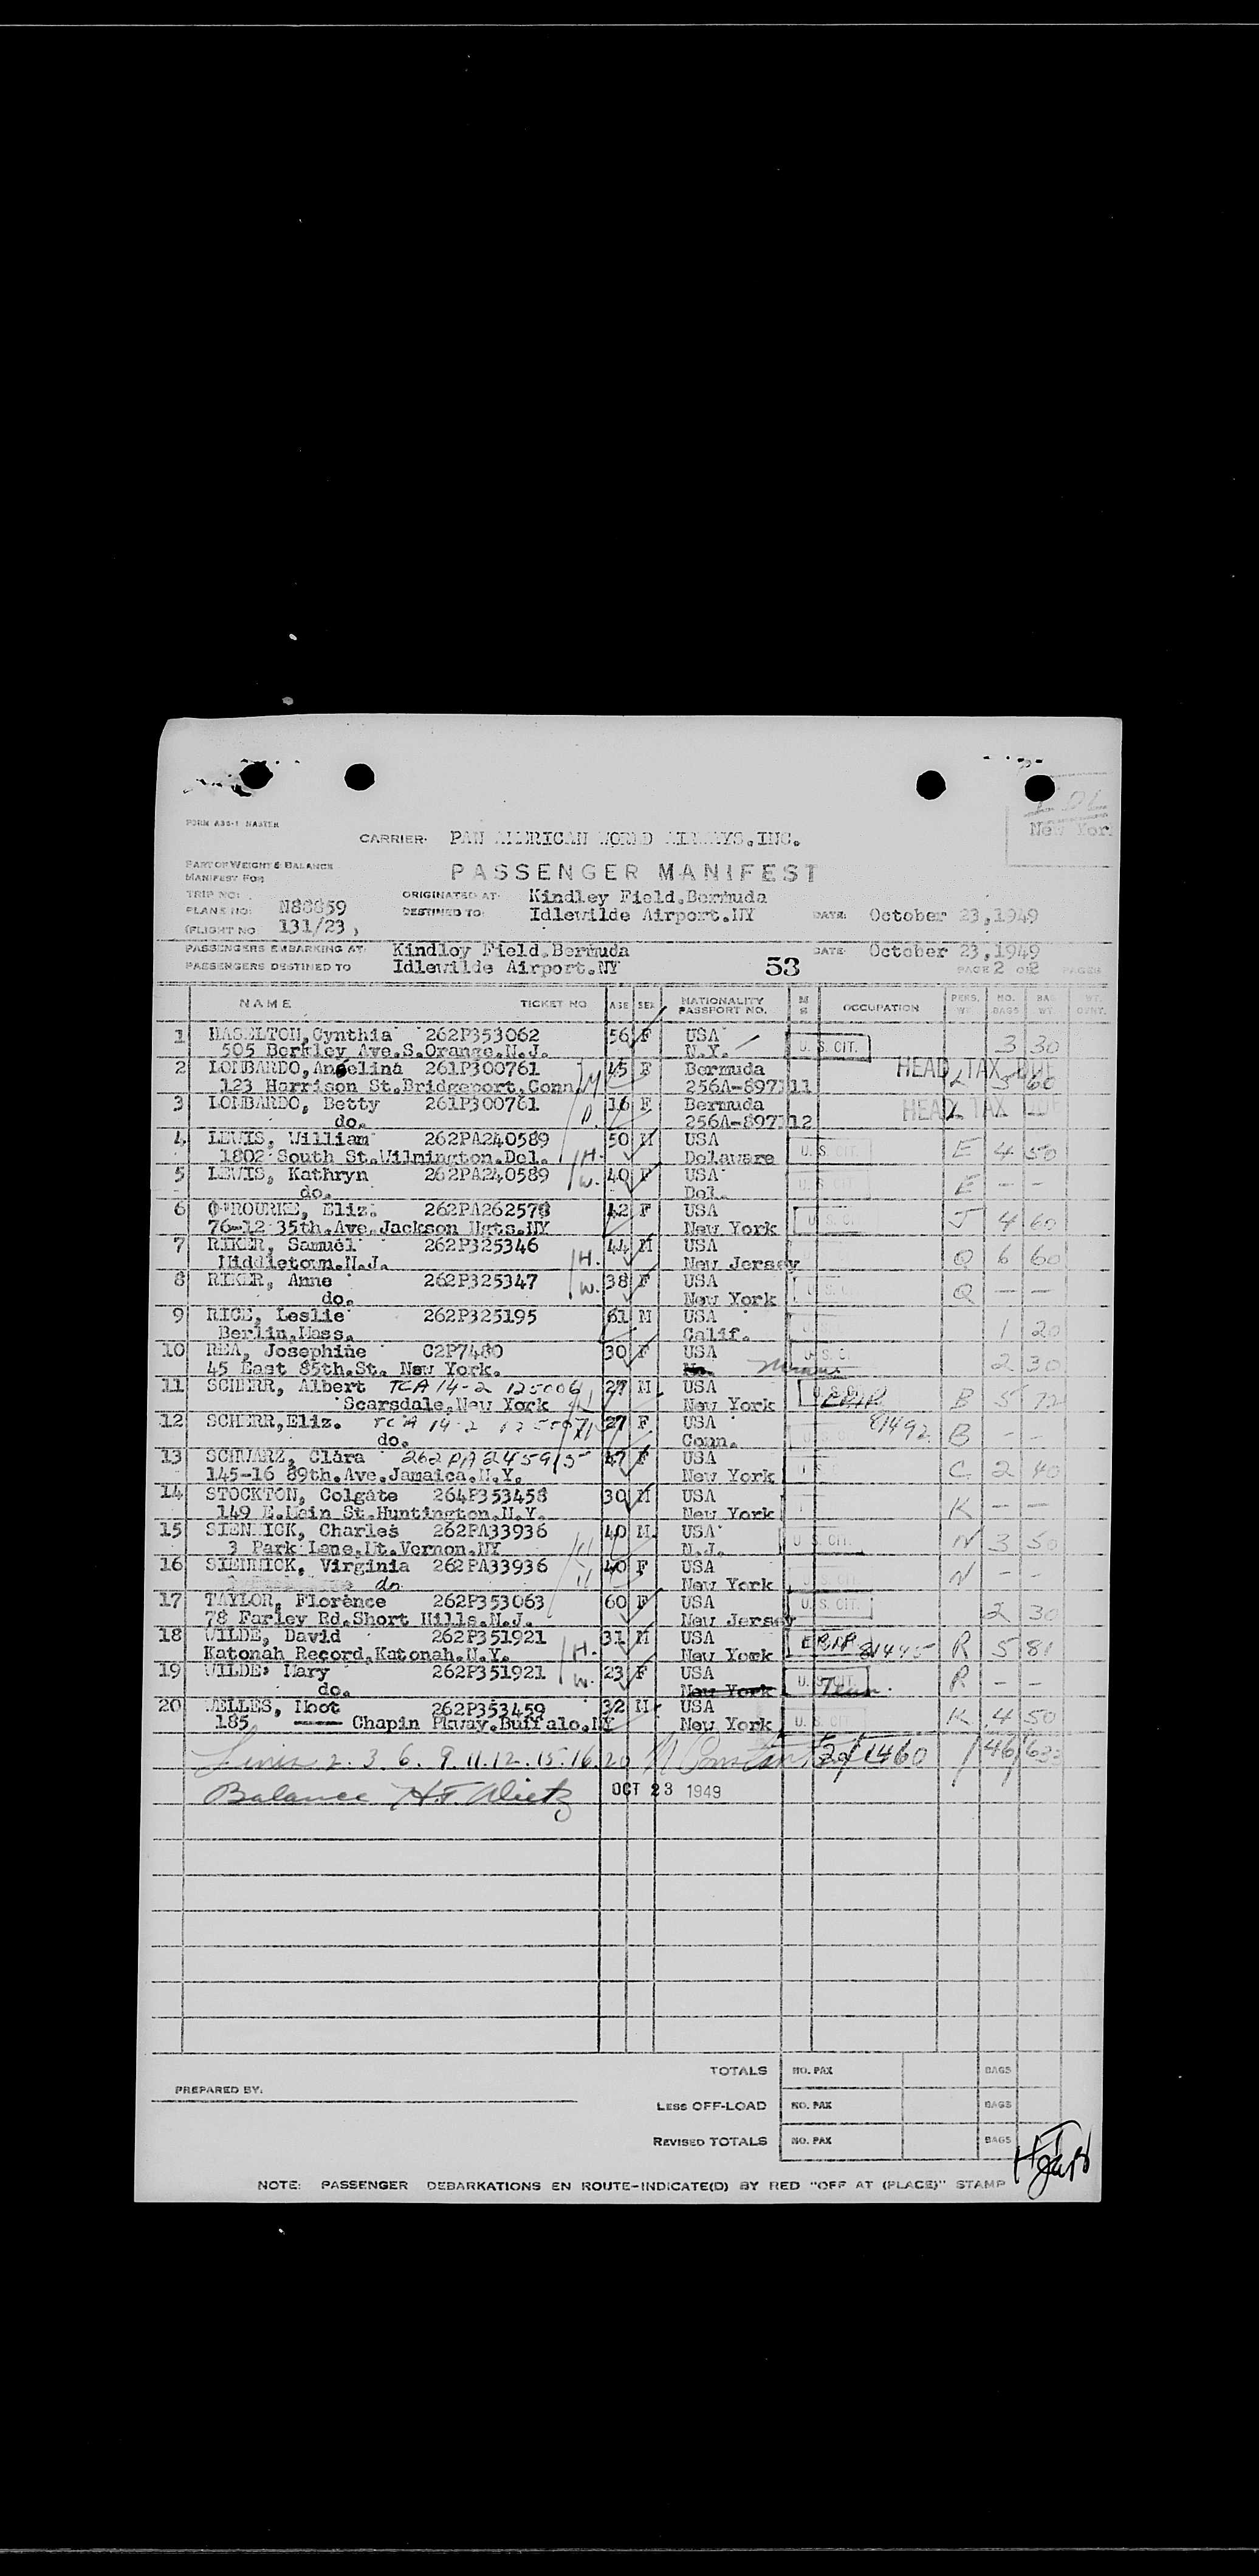 FORM ABS-1 MASTER
New Yor
CARRIER: PAN AMERICAN WORLD AIRWAYS, INC.
PART OF WEIGHT & BALANCE
MANIFEST FOR:
PASSENGER MANIFEST
TRIP NO: ORIGINATED AT: Kindley Field.Bermuda
PLANE NO: N88859 DESTINED TO: Idlewilde Airport.NY DATE: October 23,1949
(FLIGHT NO 131/23 )
PASSENGERS EMBARKING AT: Kindley Field.Bermuda DATE: October 23,1949
PASSENGERS DESTINED TO Idlewilde Airport.NY 53 PAGE 2 OF 2 PAGES
NAME TICKET NO AGE SEX NATIONALITY PASSPORT NO. M S OCCUPATION PERS. WT. NO. BAGS BAG WT. WT. DUNT.
1 HASELTON,Cynthia 262P353062 56 F USA U. S. CIT. 3 30
505 Berkley Ave.S.Orange.N.J. N.Y.
2 LOMBARDO,Angelina 261P300761 M 45 F Bermuda HEAD TAX DUE L 5 60
123 Harrison St.Bridgeport.Conn. 256A-897111
3 LOMBARDO, Betty 261P300761 D. 16 F Bermuda HEAD TAX DUE
do. 256A-897112
4 LEWIS, William 262PA240589 H. 50 M USA U. S. CIT. E 4 50
1802 South St.Wilmington.Del. Delaware
5 LEWIS, Kathryn 262PA240589 W. 40 F USA U. S. CIT E - -
do. Del.
6 O'ROURKE, Eliz. 262PA262578 42 F USA U. S. CI J 4 60
76-12 35th.Ave.Jackson Hgts.NY New York
7 RIKER, Samuel 262P325346 H. 44 M USA Q 6 60
Middletown.N.J. New Jersey
8 RIKER, Anne 262P325347 W. 38 F USA U. S. C Q - -
do. New York
9 RICE, Leslie 262P325195 61 M USA 1 20
Berlin.Mass. Calif.
10 REA, Josephine C2P7480 30 F USA U. S. C 2 30
45 East 85th.St. New York.
11 SCHERR, Albert TCA 14-2 125006 27 M USA B 5 72
Scarsdale.New York New York
12 SCHERR,Eliz. TCA 14-2 27 F USA 81492 B - -
do. Conn.
13 SCHWARZ, Clara 262PA245915 47 F USA C 2 40
145-16 89th.Ave.Jamaica.N.Y. New York
14 STOCKTON, Colgate 264P353458 30 M USA K - -
149 E.Main St.Huntington.N.Y. New York
15 SIENNICK, Charles 262PA33936 H 40 M USA U. S. CIT. N 3 50
3 Park Lane.Mt.Vernon.NY N.J.
16 SIENNICK, Virginia 262PA33936 40 F USA U. S. CIT N - -
do New York
17 TAYLOR, Florence 262P353063 60 F USA U. S. CIT. 2 30
78 Farley Rd.Short Hills.N.J. New Jersey
18 WILDE, David 262P351921 H. 31 M USA 81445 R 5 81
Katonah Record.Katonah.N.Y. New York
19 WILDE, Mary 262P351921 W. 23 F USA U. S. CIT Tenn. R - -
do. New York
20 WELLES, Moot 262P353459 32 M USA U. S. CIT K 4 50
185 Chapin Pkway.Buffalo.NY New York
Lines 2. 3. 6. 9. 11. 12. 15. 16. 20 20/1460 46
Balance H.F. Dietz OCT 23 1949
TOTALS NO. PAX BAGS
PREPARED BY:
LESS OFF-LOAD NO. PAX BAGS
REVISED TOTALS NO. PAX BAGS
NOTE: PASSENGER DEBARKATIONS EN ROUTE-INDICATE(D) BY RED "OFF AT (PLACE)" STAMP